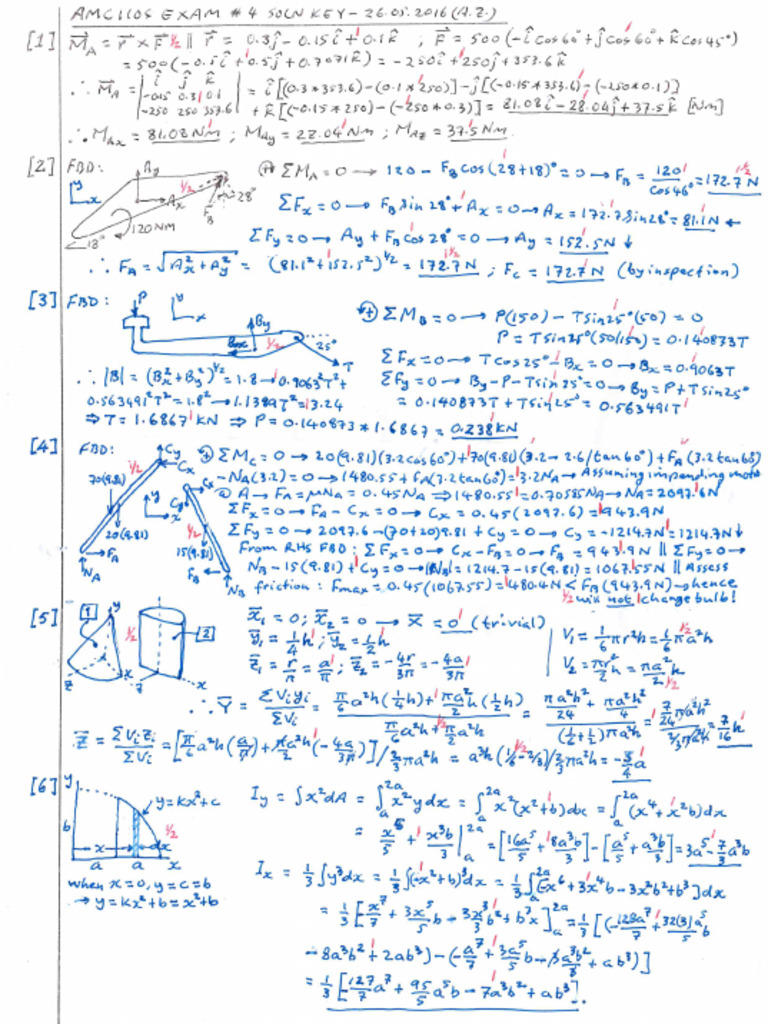 AMC110S EXAM #4 SOLN KEY - 26.05.2016 (A.Z.)
[1] M⃗_A = r⃗ × F⃗ 1/2 || r⃗ = 0.3ĵ - 0.15î + 0.1k̂ ; F⃗ = 500(-î cos60° + ĵ cos60° + k̂ cos45°)
= 500(-0.5î + 0.5ĵ + 0.7071k̂) = -250î + 250ĵ + 353.6k̂
∴ M⃗_A = | î ĵ k̂ | -0.15 0.3 0.1 | -250 250 353.6 | = î[(0.3*353.6) - (0.1*250)] - ĵ[(-0.15*353.6) - (-250*0.1)]
+ k̂[(-0.15*250) - (-250*0.3)] = 81.08î - 28.04ĵ + 37.5k̂ [Nm]
∴ M_Ax = 81.08 Nm ; M_Ay = 28.04 Nm ; M_Az = 37.5 Nm.
[2] FBD: A_y A_x F_B 28° 18° 120NM y x 1/2
ΣM_A = 0 → 120 - F_B cos(28+18)° = 0 → F_B = 120/cos46° = 172.7 N
ΣF_x = 0 → F_B sin28° + A_x = 0 → A_x = 172.7 sin28° = 81.1N ←
ΣF_y = 0 → A_y + F_B cos28° = 0 → A_y = 152.5N ↓
∴ F_A = √(A_x² + A_y²) = (81.1² + 152.5²)^1/2 = 172.7 N ; F_C = 172.7 N (by inspection)
[3] FBD: P y x B_y B_x 1/2 25° T
ΣM_B = 0 → P(150) - T sin25°(50) = 0
P = T sin25°(50/150) = 0.140873T
ΣF_x = 0 → T cos25° - B_x = 0 → B_x = 0.9063T
∴ |B| = (B_x² + B_y²)^1/2 = 1.8 → 0.9063²T² +
ΣF_y = 0 → B_y - P - T sin25° = 0 → B_y = P + T sin25°
0.563491²T² = 1.8² → 1.1389T² = 3.24
= 0.140873T + T sin25° = 0.563491T
⇒ T = 1.6867 kN ⇒ P = 0.140873 * 1.6867 = 0.238 kN
[4] FBD: C_y C_x 1/2 70(9.81) 20(9.81) F_A N_A y x C_x C_y 15(9.81) F_B N_B 1/2
ΣM_C = 0 → 20(9.81)(3.2cos60°) + 70(9.81)(3.2 - 2.6/tan60°) + F_A(3.2tan60°)
- N_A(3.2) = 0 → 1480.55 + F_A(3.2tan60°) = 3.2N_A → Assuming impending motn
@ A → F_A = μN_A = 0.45N_A → 1480.55 = 0.70585N_A → N_A = 2097.6N
ΣF_x = 0 → F_A - C_x = 0 → C_x = 0.45(2097.6) = 943.9N
ΣF_y = 0 → 2097.6 - (70+20)9.81 + C_y = 0 → C_y = -1214.7N = 1214.7N ↓
From RHS FBD: ΣF_x = 0 → C_x - F_B = 0 → F_B = 943.9N || ΣF_y = 0 →
N_B - 15(9.81) + C_y = 0 → |N_B| = 1214.7 - 15(9.81) = 1067.55N || Assess
friction: F_max = 0.45(1067.55) = 480.4N < F_B(943.9N) → hence
1/2 will not change bulb!
[5] 1 2 y x z 1/2
x̄_1 = 0 ; x̄_2 = 0 → X̄ = 0 (trivial)
ȳ_1 = 1/4 h ; ȳ_2 = 1/2 h
V_1 = 1/6 πr²h = 1/6 πa²h
z̄_1 = r/π = a/π ; z̄_2 = -4r/3π = -4a/3π
V_2 = πr²/2 h = πa²/2 h
∴ Ȳ = ΣV_i y_i / ΣV_i = (π/6 a²h(1/4 h) + πa²h/2 (1/2 h)) / (π/6 a²h + π/2 a²h) = (πa²h²/24 + πa²h²/4) / ((1/6 + 1/2)πa²h) = (7/24 πa²h²) / (2/3 πa²h) = 7/16 h
Z̄ = ΣV_i z_i / ΣV_i = [π/6 a²h(a/π) + π/2 a²h(-4a/3π)] / 2/3 πa²h = a³h(1/6 - 2/3) / 2/3 πa²h = -3/4 a
[6] y y = kx² + c b x dx a a x 1/2
I_y = ∫x²dA = ∫_a^2a x²ydx = ∫_a^2a x²(x²+b)dx = ∫_a^2a (x⁴ + x²b)dx
= x⁵/5 + x³b/3 |_a^2a = [16a⁵/5 + 8a³b/3] - [a⁵/5 + a³b/3] = 3a⁵ - 7/3 a³b
I_x = 1/3 ∫y³dx = 1/3 ∫(-x² + b)³dx = 1/3 ∫_a^2a [-x⁶ + 3x⁴b - 3x²b² + b³]dx
when x = 0, y = c = b
→ y = kx² + b = x² + b
= 1/3 [-x⁷/7 + 3x⁵/5 b - 3x³/3 b² + b³x]_a^2a = 1/3 [(-128a⁷/7 + 32(3)/5 a⁵b
- 8a³b² + 2ab³) - (-a⁷/7 + 3a⁵/5 b - 3a³b²/3 + ab³)]
= 1/3 [-127/7 a⁷ + 95/5 a⁵b - 7a³b² + ab³].